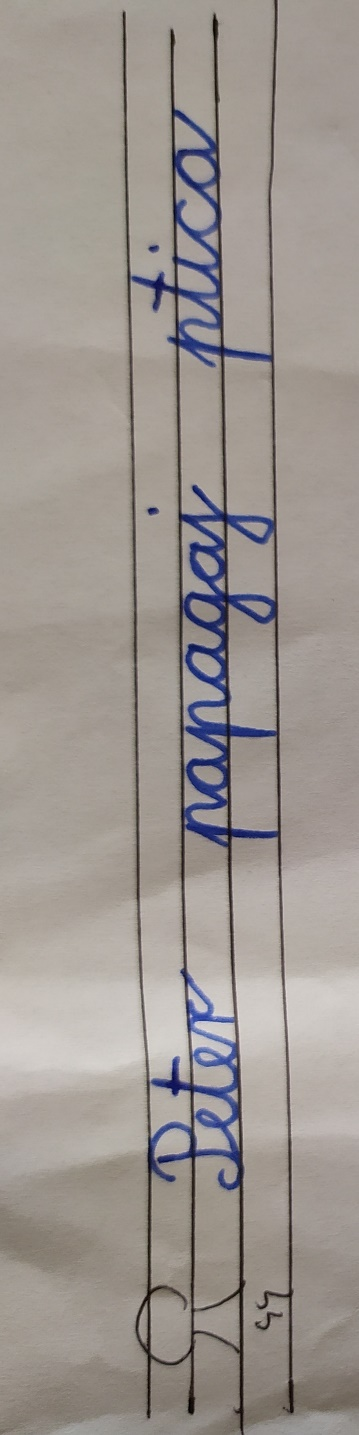 Peter papagaj ptica